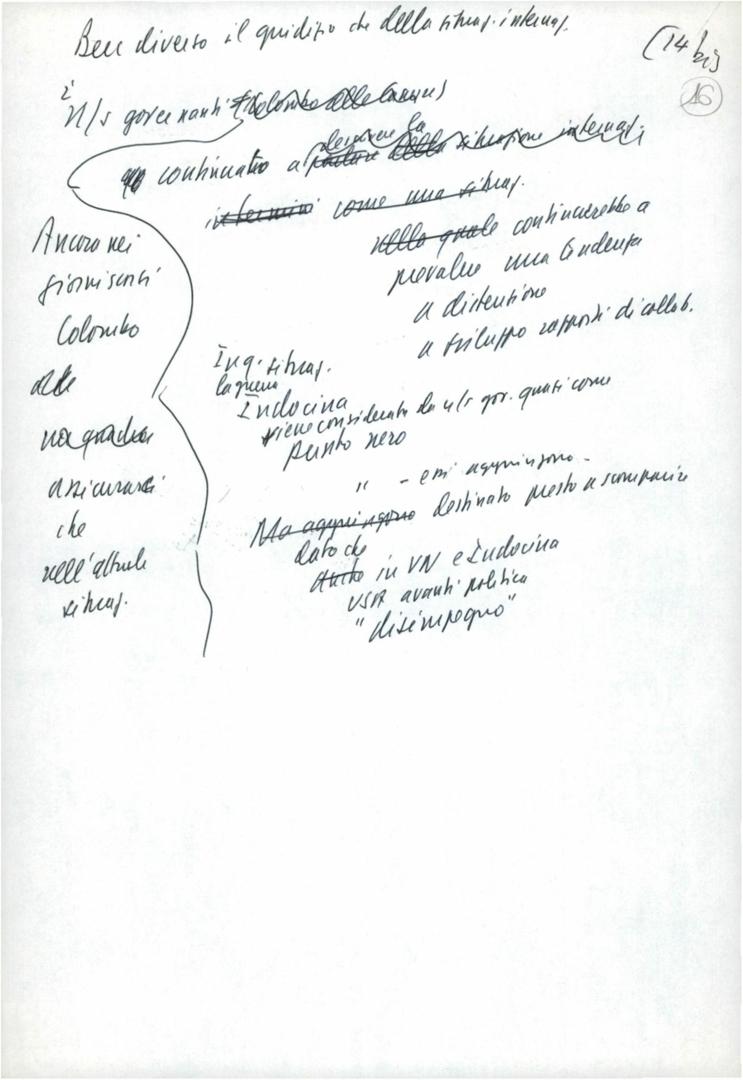 Ben diverso il giudizio che della situaz. internaz.
(14 bis
16
i
n/s governanti (Colombo alla Camera)
continuano a descrivere la situazione internaz.
in termini come una situaz.
nella quale continuerebbe a
prevalere una tendenza
a distensione
a sviluppo rapporti di collab.
Ancora nei
giorni scorsi
Colombo
alle
assicurarci
che
nell'attuale
situaz.
In q. situaz.
la guerra
Indocina
viene considerata da n/s gov. quasi come
punto nero
" - essi aggiungono -
Ma aggiungono destinato presto a scomparire
dato che
Anche in VN e Indocina
USA avanti politica
"disimpegno"